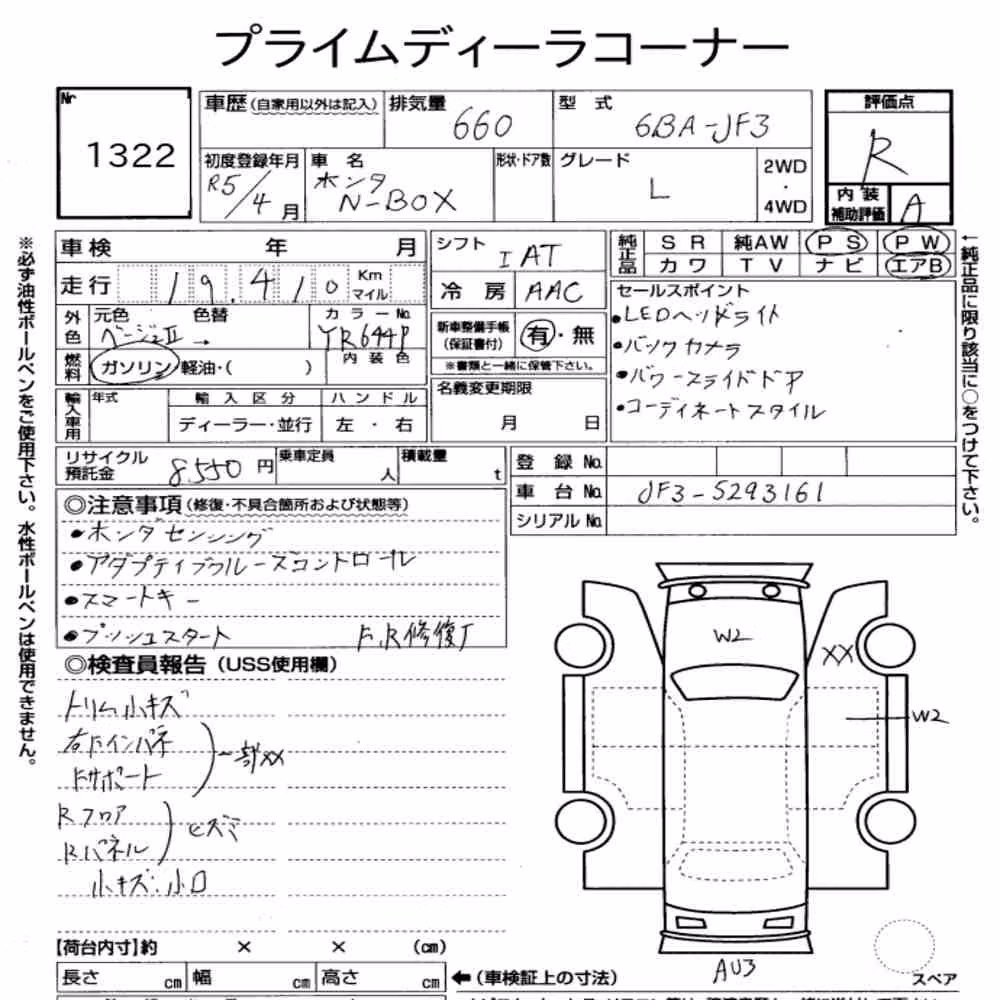 プライムディーラコーナー
Nr
1322
車歴(自家用以外は記入)
排気量
660
型 式
6BA-JF3
評価点
R
初度登録年月
R5/4月
車 名
ホンダ
N-BOX
形状・ドア数
グレード
L
2WD
・
4WD
内装
補助評価
A
車検 年 月
走行 19.410 Km
マイル
外色
元色 色替
ベージュⅡ →
カラーNo.
YR644P
内装色
燃料
ガソリン・軽油・( )
輸入車用
年式
輸入区分
ディーラー・並行
ハンドル
左・右
シフト
IAT
冷房 AAC
新車整備手帳
(保証書付)
有・無
※書類と一緒に保管下さい。
名義変更期限
月 日
純正品
SR 純AW PS PW
カワ TV ナビ エアB
セールスポイント
•LEDヘッドライト
•バックカメラ
•パワースライドドア
•コーディネートスタイル
←純正品に限り該当に○をつけて下さい。
※必ず油性ボールペンをご使用下さい。水性ボールペンは使用できません。
リサイクル
預託金
8550円
乗車定員
人
積載量
t
登録No.
車台No. JF3-5293161
シリアルNo.
◎注意事項(修復・不具合箇所および状態等)
•ホンダセンシング
•アダプティブクルーズコントロール
•スマートキー
•プッシュスタート F.R修復了
◎検査員報告(USS使用欄)
トリム小キズ
右Fインパネ
Fサポート
一部XX
Rフロア
Rパネル
ヒズミ
小キズ.小凹
W2
XX
W2
AU3
スペア
【荷台内寸】約 × × (cm)
長さ cm 幅 cm 高さ cm
←(車検証上の寸法)